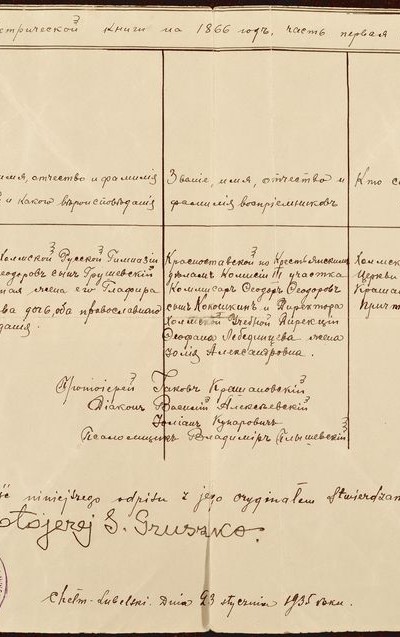 стрической книги на 1866 годъ, часть первая
имя, отчество и фамилія
и какого вѣроисповѣданія
Званіе, имя, отчество и
фамилія воспріемниковъ
Кто со
Холмской Русской Гимназіи
еодоровъ сынъ Грушевскій
ная жена его Глафира
оба православнаго
Красноставской по Крестьянскимъ
дѣламъ Комисіи III участка
Коммисаръ Ѳеодоръ Ѳеодоровъ
сынъ Кокошкинъ и Директора
Холмской Учебной Дирекціи
Ѳеофана Лебединцева жена
Юлія Александровна.
Холмск
Церкви
Крашан
Причт
Протоіерей Іаковъ Крашановскій
Діаконъ Василій Алексѣевскій
Іоаннъ Кухаровичъ
Псаломщикъ Владиміръ
ść niniejszego odpisu z jego oryginałem stwierdzam
otojerej S. Gruszko.
Chełm-Lubelski. Dnia 23 stycznia 1935 roku.